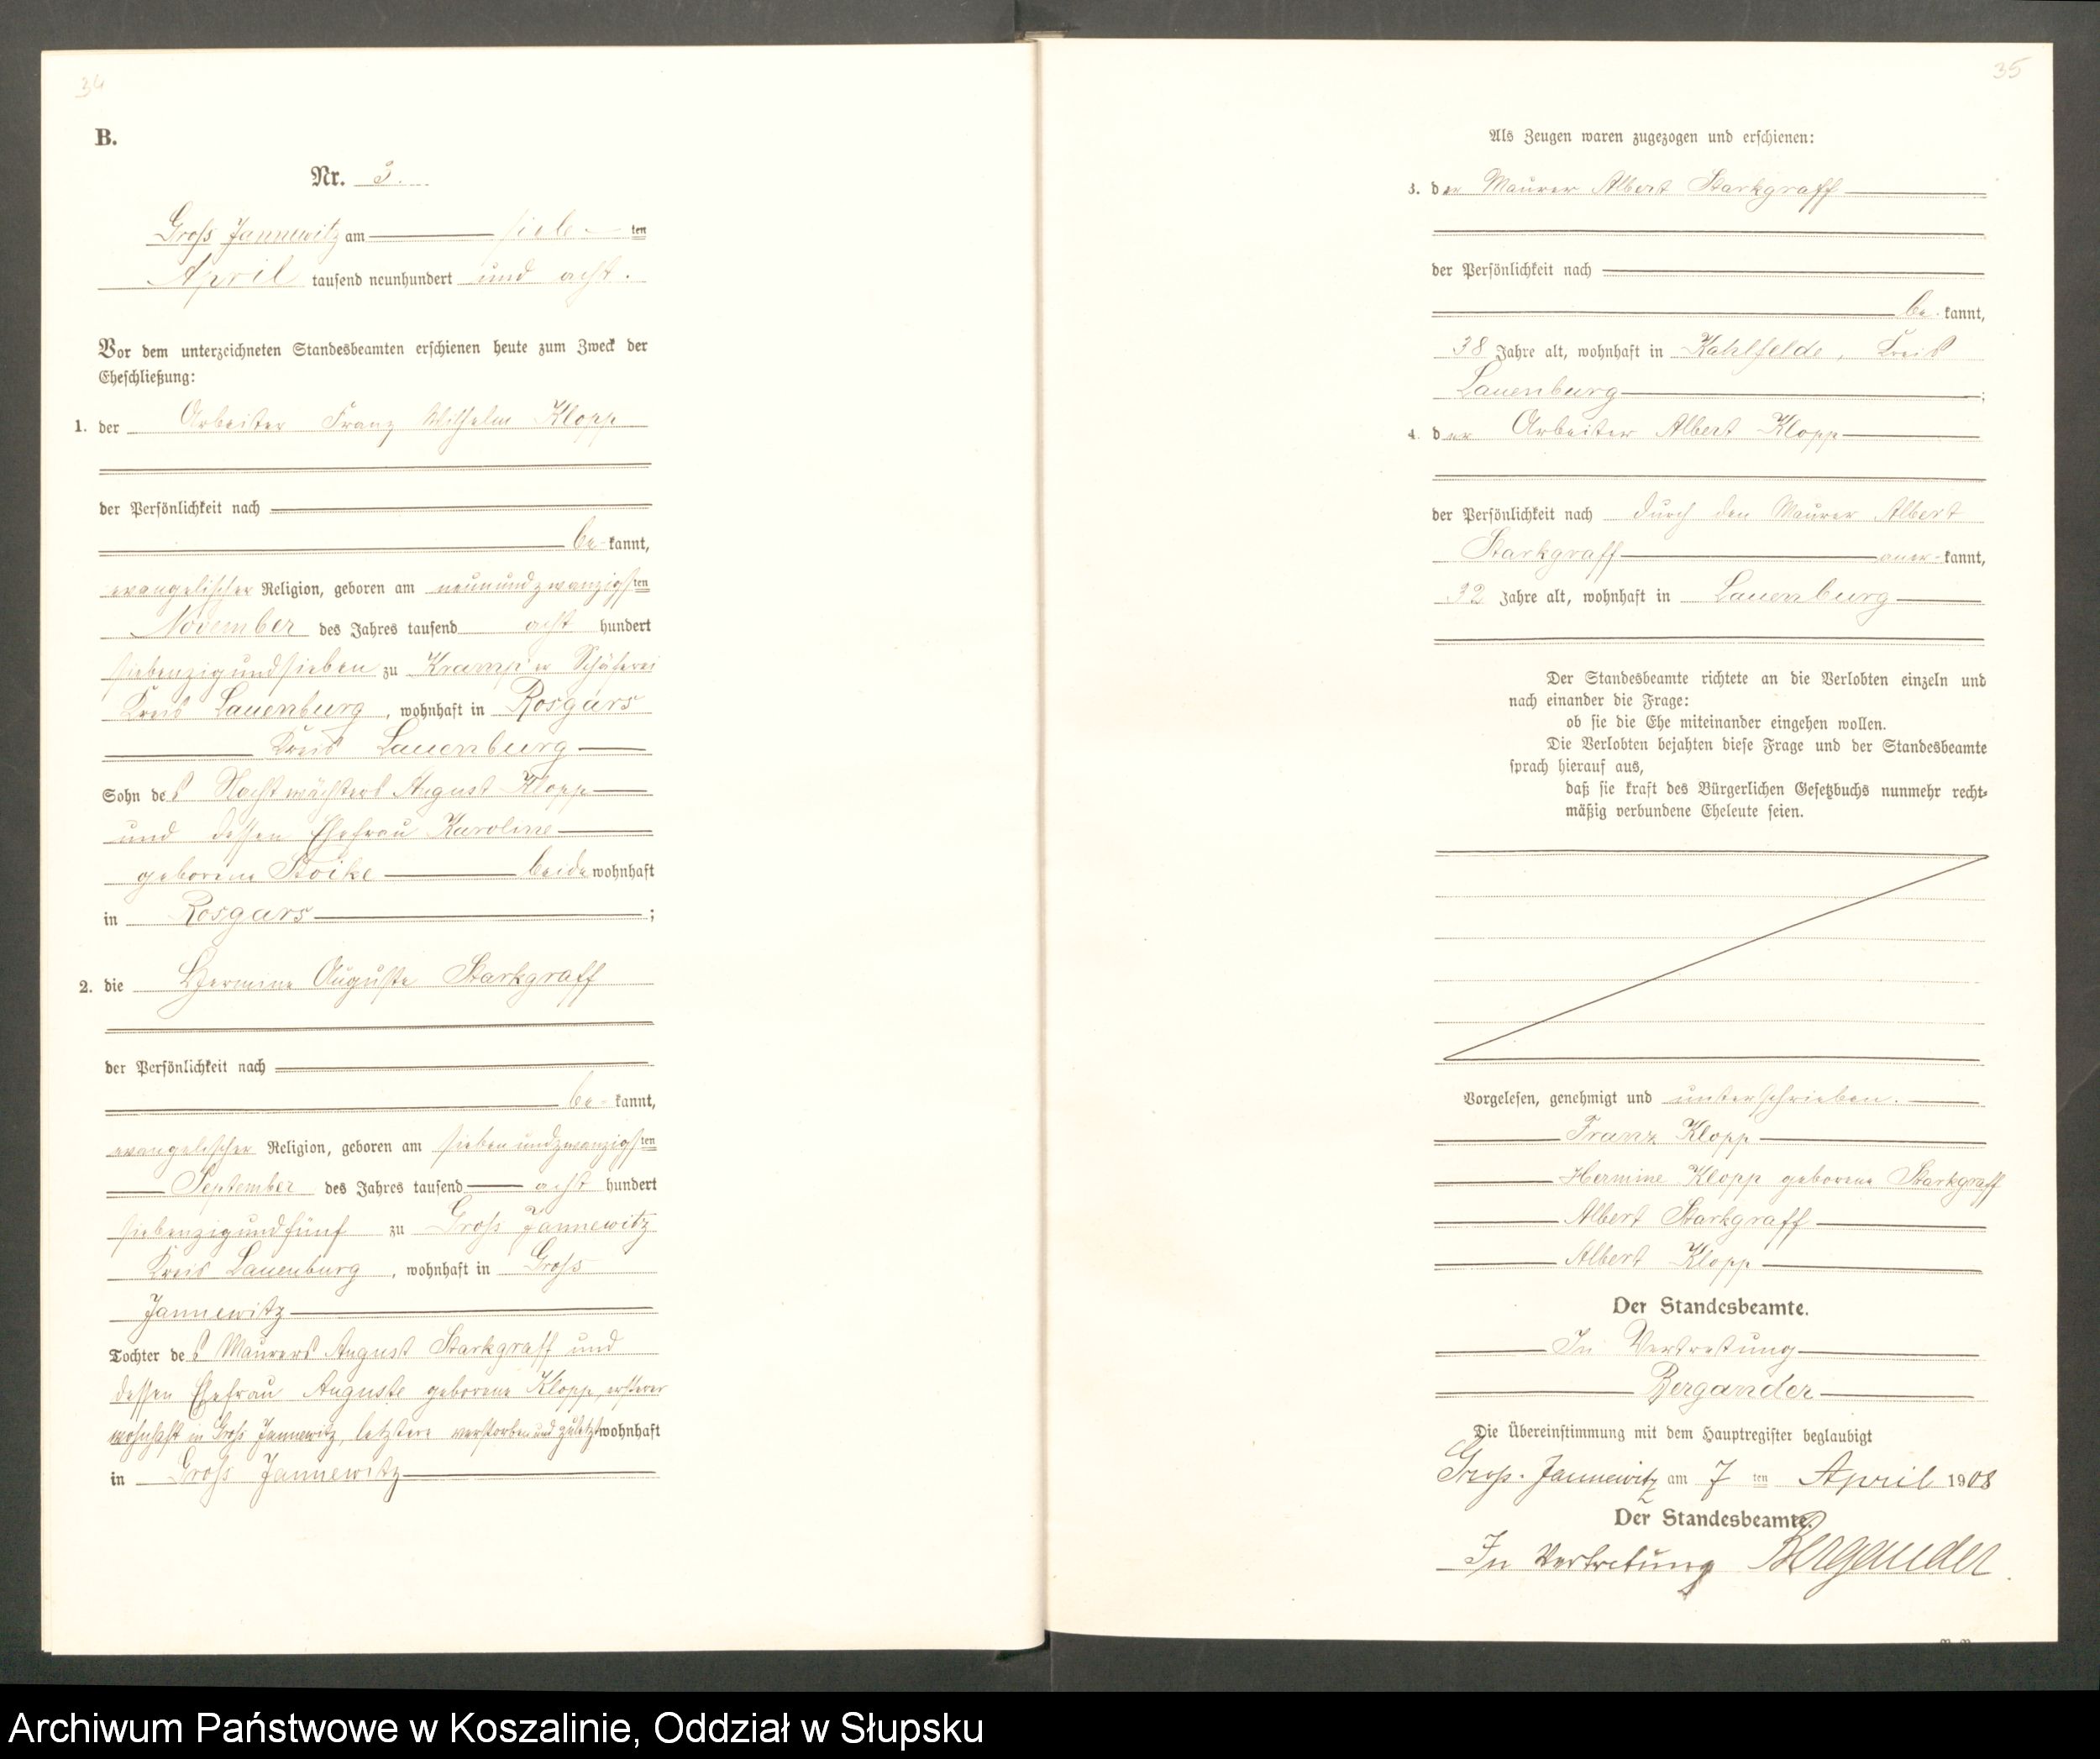 34
B.
Nr. 3.
Gross Jannewitz am siebenten
April tausend neunhundert und acht.
Vor dem unterzeichneten Standesbeamten erschienen heute zum Zweck der
Eheschließung:
1. der Arbeiter Franz Wilhelm Klopp
der Persönlichkeit nach
be kannt,
evangelischer Religion, geboren am neunundzwanzigsten
November des Jahres tausend acht hundert
siebenzigundsieben zu Krampe'er Schäferei
Kreis Lauenburg, wohnhaft in Rosgars
Kreis Lauenburg
Sohn des Nachtwächters August Klopp
und dessen Ehefrau Karoline
geborene Stoike beide wohnhaft
in Rosgars;
2. die Hermine Auguste Starkgraff
der Persönlichkeit nach
be kannt,
evangelischer Religion, geboren am siebenundzwanzigsten
September des Jahres tausend acht hundert
siebenzigundfünf zu Gross Jannewitz
Kreis Lauenburg, wohnhaft in Gross
Jannewitz
Tochter des Maurers August Starkgraff und
dessen Ehefrau Auguste geborene Klopp, ersterer
wohnhaft in Gross Jannewitz, letztere verstorben und zuletzt wohnhaft
in Gross Jannewitz
35
Als Zeugen waren zugezogen und erschienen:
3. der Maurer Albert Starkgraff
der Persönlichkeit nach
be kannt,
38 Jahre alt, wohnhaft in Kahlfelde, Kreis
Lauenburg;
4. der Arbeiter Albert Klopp
der Persönlichkeit nach durch den Maurer Albert
Starkgraff aner-kannt,
32 Jahre alt, wohnhaft in Lauenburg
Der Standesbeamte richtete an die Verlobten einzeln und
nach einander die Frage:
ob sie die Ehe miteinander eingehen wollen.
Die Verlobten bejahten diese Frage und der Standesbeamte
sprach hierauf aus,
daß sie kraft des Bürgerlichen Gesetzbuchs nunmehr recht-
mäßig verbundene Eheleute seien.
Vorgelesen, genehmigt und unterschrieben.
Franz Klopp
Hermine Klopp geborene Starkgraff
Albert Starkgraff
Albert Klopp
Der Standesbeamte.
In Vertretung
Bergander
Die Übereinstimmung mit dem Hauptregister beglaubigt
Gross-Jannewitz am 7ten April 1908
Der Standesbeamte.
In Vertretung Bergander.
Archiwum Państwowe w Koszalinie, Oddział w Słupsku